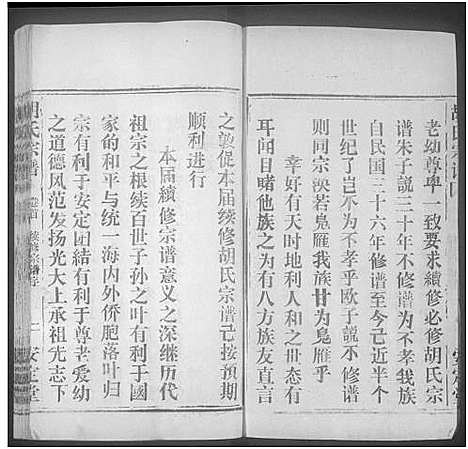 老幼尊卑一致要求續修必修胡氏宗
谱朱子説三十年不修谱不孝我族
自民国三十六年修谱至今已近半个
世纪了岂不为不孝乎欧子説不修谱
则同宗泱若凫雁我族甘为凫雁乎
幸好有天时地利人和之世态有
耳闻目睹他族之为有八方族友直言
之敦促本届续修胡氏宗谱己按预期
顺利进行
本届續修宗谱意义之深继历代
祖宗之根续百世子孙之叶有利于國
家的和平与统一海内外侨胞落叶归
宗有利于安定团结有利于尊老爱幼
之道德风范发扬光大上承祖先志下
胡氏宗谱 卷首 续修宗谱序 一 安定堂